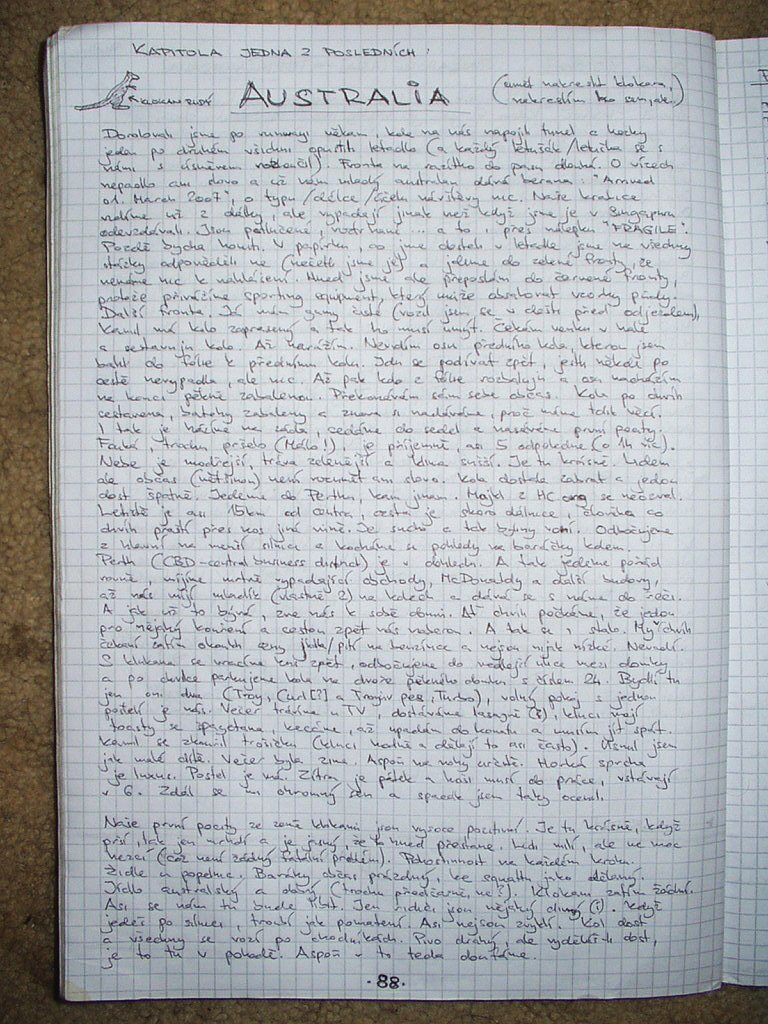 KAPITOLA JEDNA Z POSLEDNÍCH:
KLOKAN RUDÝ AUSTRALIA (umět nakreslit klokana,
nakreslím ho sem jak.)
Dorolovali jsme po runwayi někam, kde na nás napojili tunel a hezky
jeden po druhém všichni opustili letadlo (a každý letušák/letuška se s
námi s úsměvem rozloučil). Fronta na razítko do pasu dlouhá. O vízech
nepadlo ani slovo a už nám mladý australan dává berana "Arrived
01. March 2007", o typu/délce/účelu návštěvy nic. Naše krabice
vidíme už z dálky, ale vypadají jinak než když jsme je v Singapuru
odevzdávali. Jsou potlučené, roztrhané ... a to i přes nálepku "FRAGILE".
Pozdě bycha honit. V papírku, co jme dostali v letadle jsme na všechny
otázky odpověděli ne (nečetli jsme je) a jdeme do zelené fronty, že
nemáme nic k nahlášení. Hned jsme ale přeposláni do červené fronty,
protože přivážíme sporting equipment, který může obsahovat vzorky půdy.
Další fronta. Já mám gumy čisté (vozil jsem se v dešti před odjezdem),
Kamil má kolo zaprasený a tak ho musí umýt. Čekám venku v hale
a sestavuju kolo. Až narážím. Nevidím osu předního kola, kterou jsem
balil do fólie k přednímu kolu. Jdu se podívat zpět, jestli někde po
cestě nevypadla, ale nic. Až pak kolo z fólie rozbaluju a osu nacházím
na konci pěkně zabalenou. Překonávám sám sebe občas. Kola po chvíli
sestavena, batohy zabaleny a znova si nadáváme, proč máme tolik věcí.
I tak je házíme na záda, sedáme do sedel a nasáváme první pocity.
Fouká, trochu pršelo (Málo!), je příjemně, asi 5 odpoledne (o 1h víc).
Nebe je modřejší, tráva zelenější a hlína Je tu krásně. Lidem
ale občas (většinou) není rozumět ani slovo. Kola dostala zabrat a jedou
dost špatně. Jedeme do Perthu, kam jinam. Majkl z HC.org se neozval.
Letiště je asi 15km od centra, cesta je skoro dálnice, člověka co
chvíli praští přes nos jiná vůně. Je sucho a tak byliny voní. Odbočujeme
z hlavní na menší silnice a kocháme se pohledy na baráčky kolem.
Perth (CBD-central business district) je v dohledu. A tak jedeme pořád
rovně, míjíme mrtvě vypadající obchody, McDonaldy a další budovy,
až nás míjí mladík (vlastně 2) na kolech a dává se s náma do řeči.
A jak už to bývá, zve nás k sobě domů. Ať chvíli počkáme, že jedou
pro nějaký koření a cestou zpět nás naberou. A tak se i stalo. My chvíli
čekání zatím okoukli ceny jídla/pití na benzínce a nejsou nijak nízké. Nevadí.
S klukama se vracíme kus zpět, odbočujeme do vedlejší ulice mezi domky
a po chvilce parkujeme kola na dvoře pěkného domku s číslem 24. Bydlí tu
jen oni dva (Troy, Curl[?] a Troyův pes, Turbo), volný pokoj s jednou
postelí je náš. Večer trávíme u TV, dostáváme lasagně (8), kluci mají
toasty se špagetama, kecáme, až upadám do komatu a musím jít spát.
Kamil se zkouřil trošičku (kluci hodně a dělají to asi často). Usnul jsem
jak malé dítě. Večer byla zima. Aspoň na nohy určitě. Horká sprcha
je luxus. Postel je má. Zítra je pátek a hoši musí do práce, vstávají
v 6. Zdál se mi ohromný sen a spacák jsem taky ocenil.
Naše první pocity ze země klokanů jsou vysoce pozitivní. Je tu krásně, když
prší, tak jen mrholí a je jasný, že to hned přestane. Lidi milí, ale ne moc
hezcí (což není žádný fatální problém). Pohostinnost na každém kroku.
Židle u popelnic. Baráky občas prázdný, ke squattu jako dělaný.
Jídlo australský a dobrý (trochu předražený, ne?). Klokani zatím žádní.
Asi se nám tu bude líbit. Jen řidiči jsou nějaký divný (!). Když
jedeš po silnici, troubí jak pomatení. Asi nejsou zvyklí. Kol dost
a všechny se vozí po chodníkách. Pivo drahý, ale vyděláš-li dost,
je to tu v pohodě. Aspoň v to teda doufáme.
·88·